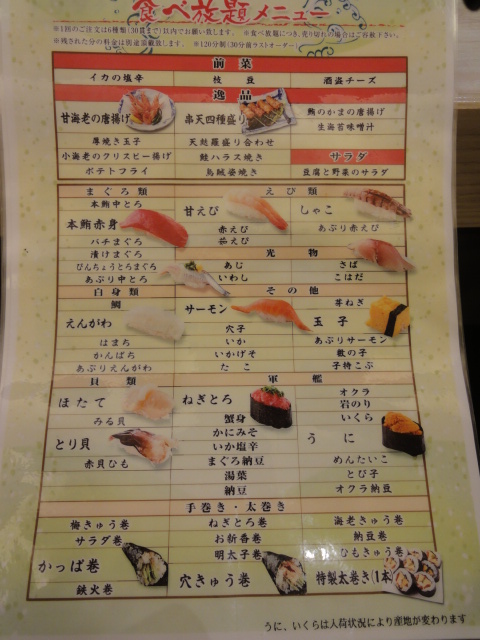 食べ放題メニュー
※1回のご注文は6種類(30貫まで)以内でお願い致します。 ※食べ放題につき、売り切れの場合はご容赦下さい。
※残された分の料金は別途頂戴致します。 ※120分制(30分前ラストオーダー)
前菜
イカの塩辛 枝豆 酒盗チーズ
逸品
甘海老の唐揚げ 串天四種盛り 鮪のかまの唐揚げ
生海苔味噌汁
厚焼き玉子 天麩羅盛り合わせ
小海老のクリスピー揚げ 鮭ハラス焼き サラダ
ポテトフライ 烏賊姿焼き 豆腐と野菜のサラダ
まぐろ類 えび類
本鮪中とろ 甘えび しゃこ
本鮪赤身 赤えび あぶり赤えび
バチまぐろ 茹えび
漬けまぐろ 光物
びんちょうとろまぐろ あじ さば
あぶり中とろ いわし こはだ
白身類 その他
鯛 サーモン 芽ねぎ
えんがわ 穴子 玉子
はまち いか あぶりサーモン
かんぱち いかげそ 数の子
あぶりえんがわ たこ 子持こぶ
貝類 軍艦
ほたて ねぎとろ オクラ
岩のり
みる貝 蟹身 いくら
とり貝 かにみそ うに
いか塩辛
赤貝ひも まぐろ納豆 めんたいこ
湯葉 とび子
納豆 オクラ納豆
手巻き・太巻き
梅きゅう巻 ねぎとろ巻 海老きゅう巻
サラダ巻 お新香巻 納豆巻
かっぱ巻 明太子巻 ひもきゅう巻
鉄火巻 穴きゅう巻 特製太巻き(1本)
うに、いくらは入荷状況により産地が変わります